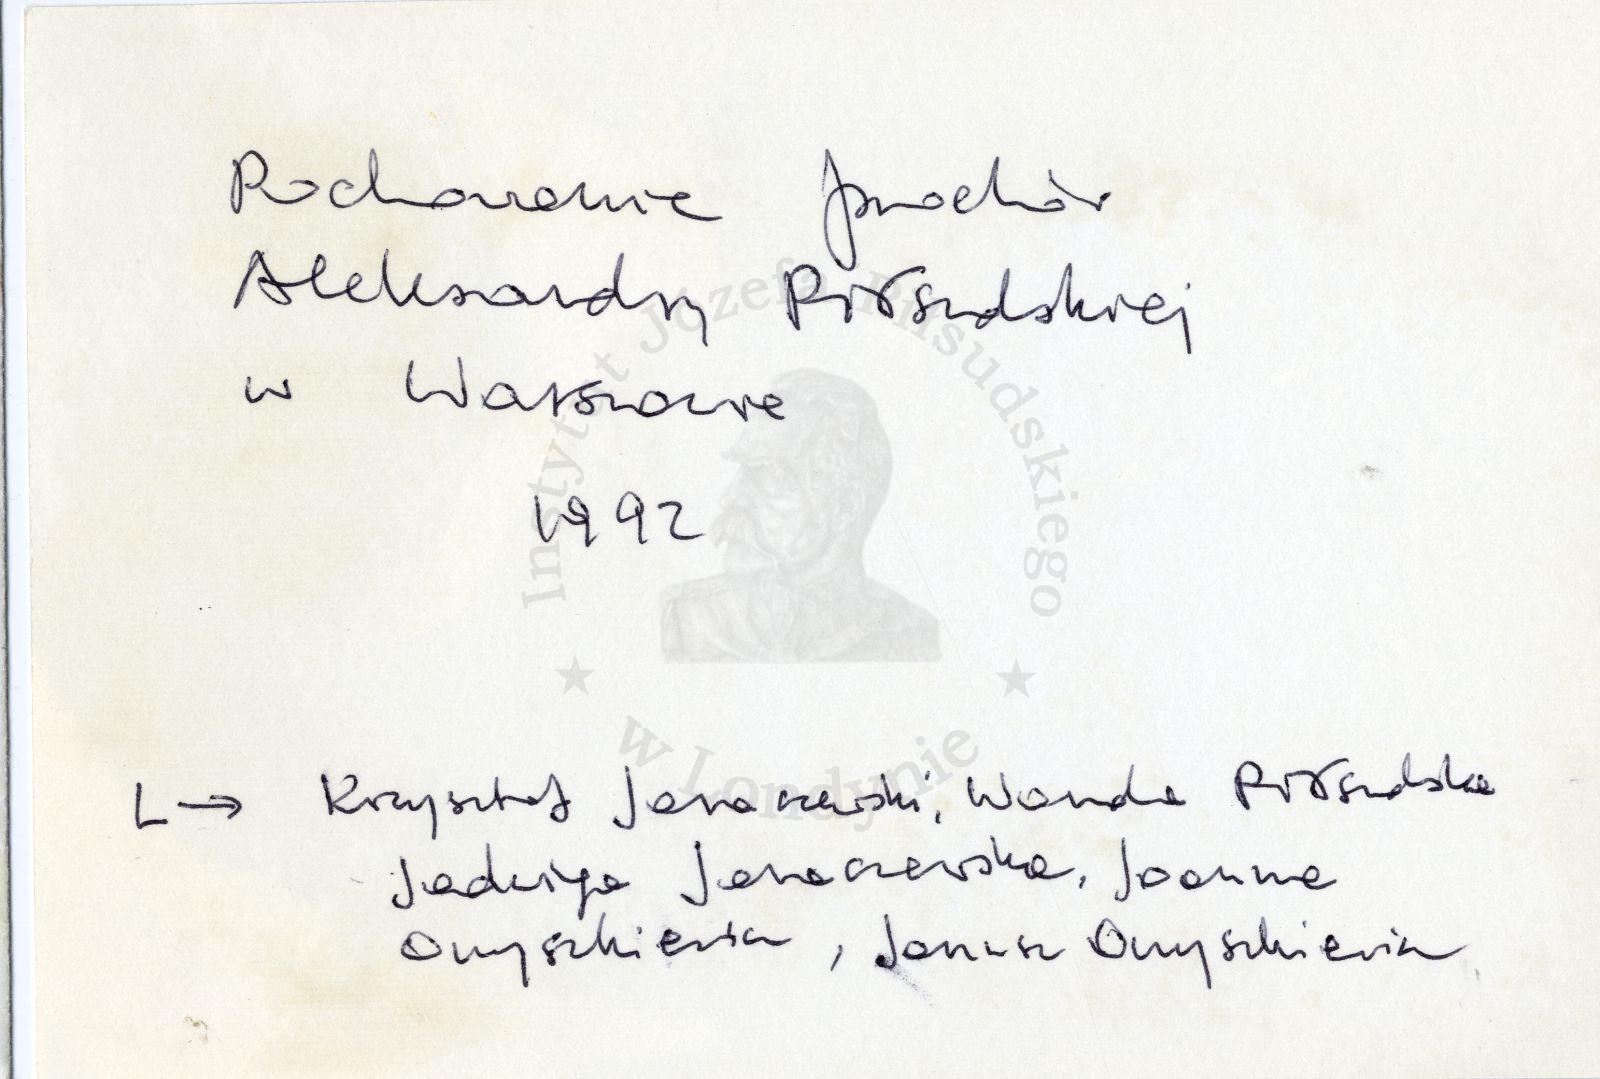 Pochowanie prochów
Aleksandry Piłsudskiej
w Warszawie
1992
Instytut Józefa Piłsudskiego
w Londynie
L → Krzysztof Jaraczewski, Wanda Piłsudska
Jadwiga Jaraczewska, Joanna
Onyszkiewicz, Janusz Onyszkiewicz